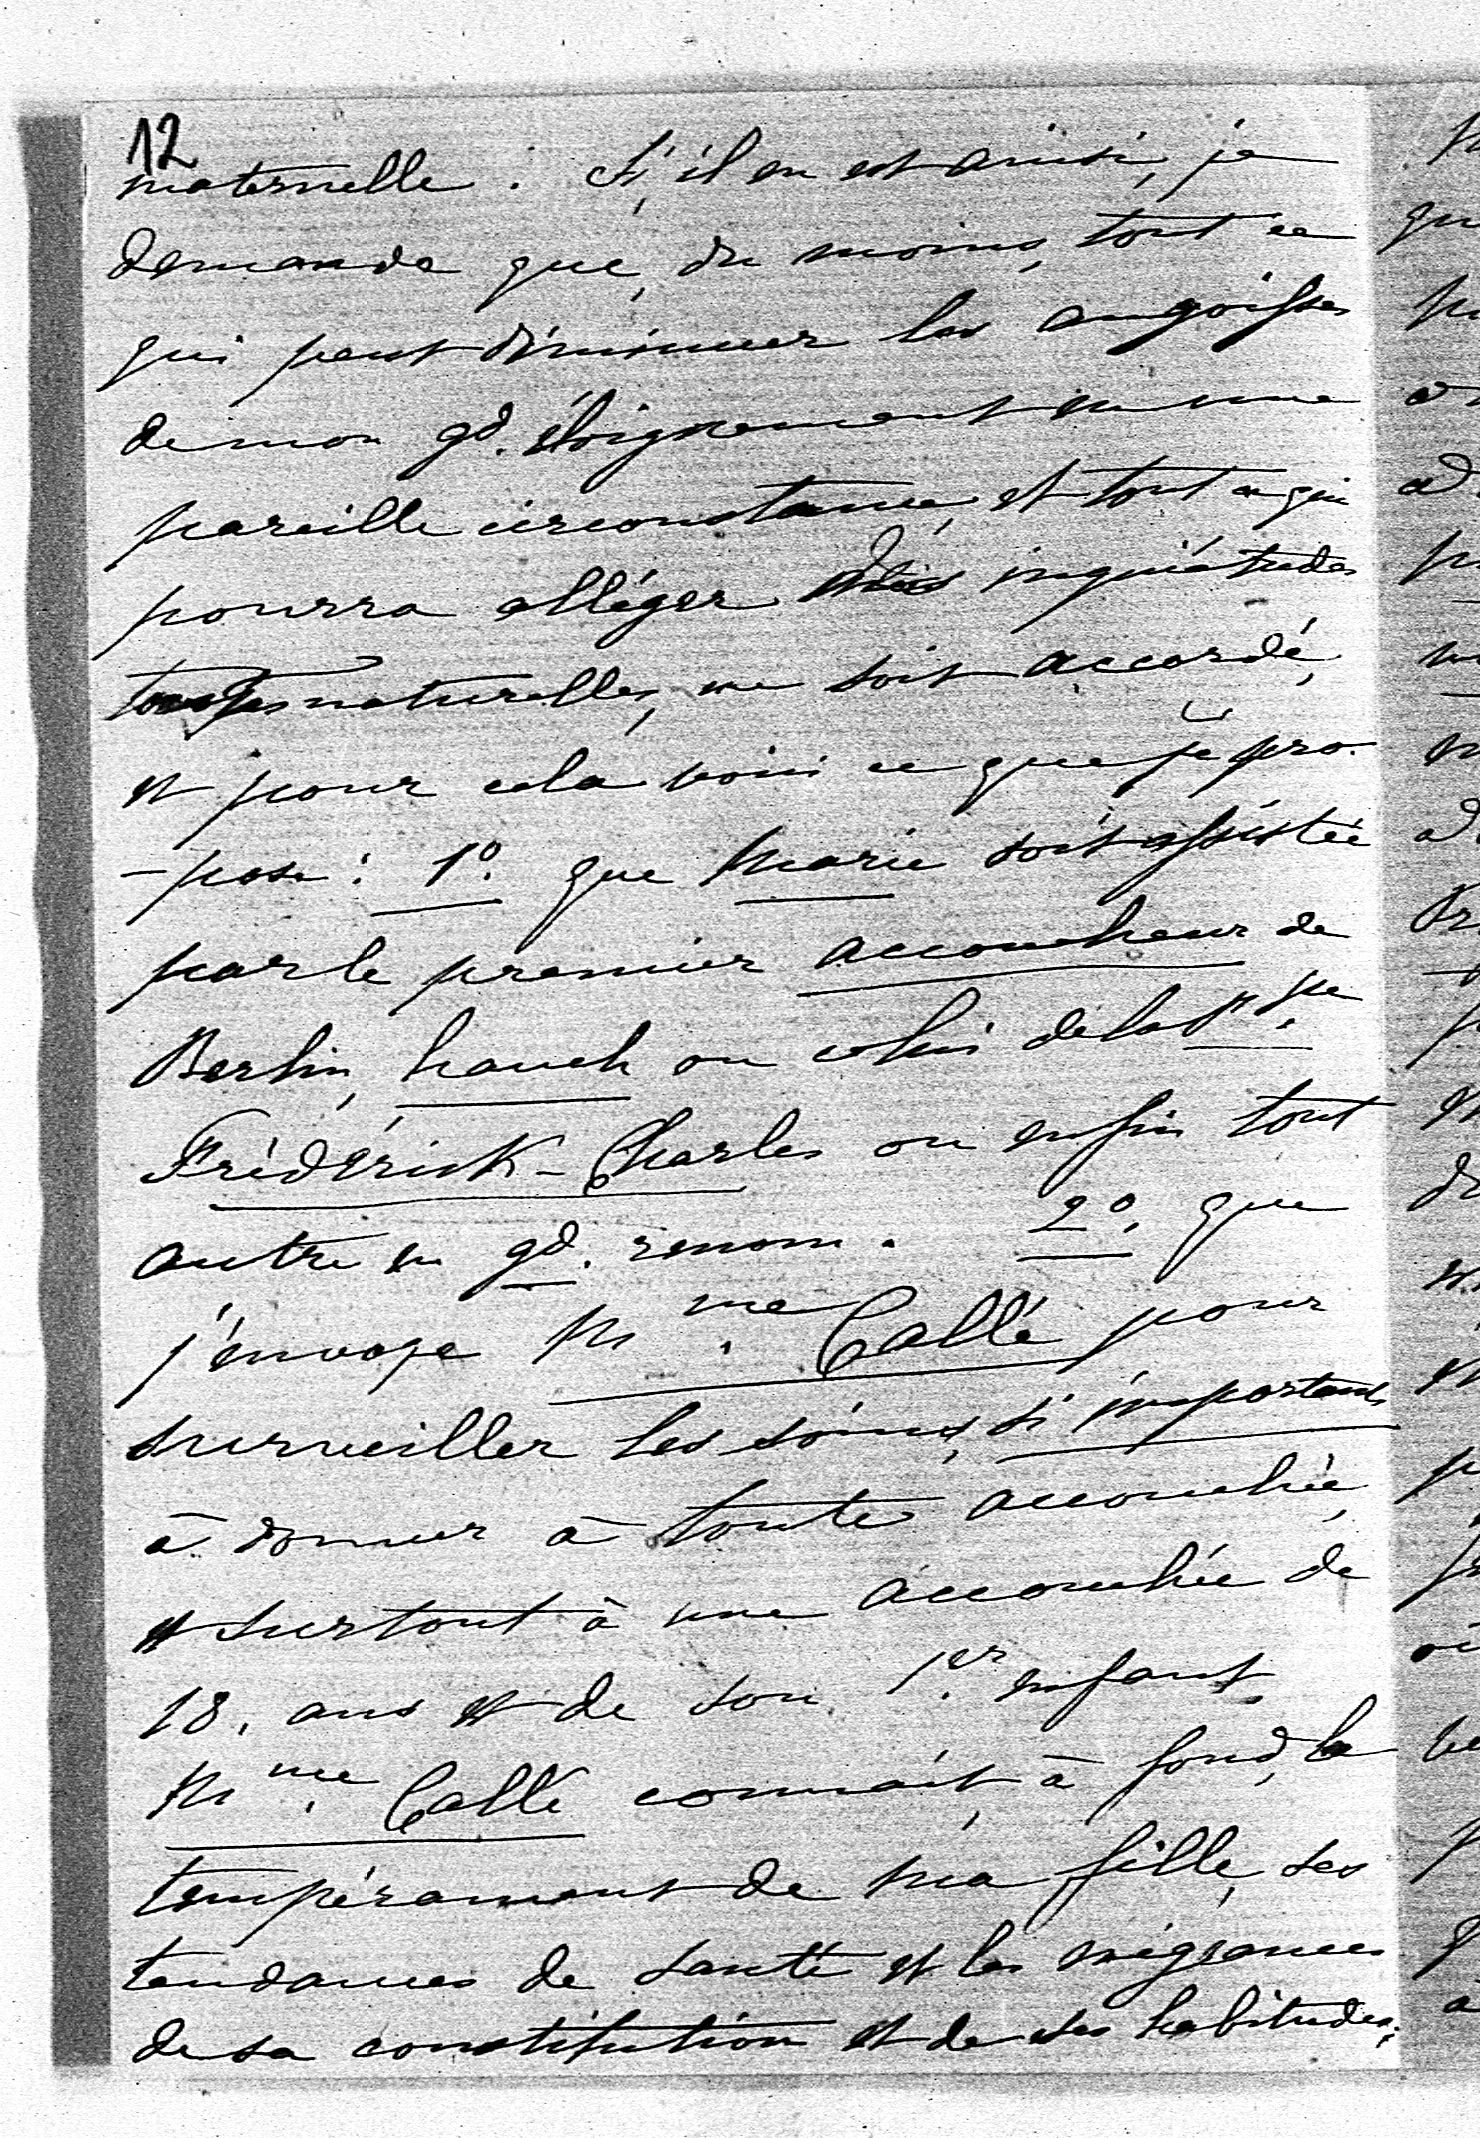 12
maternelle. S'il en est ainsi, je
demande que, du moins, tout ce
qui peut diminuer les angoisses
de mon gd. éloignement en une
pareille circonstance, et tout ce qui
pourra alléger des inquiétudes
naturelles, me soit accordé,
et pour cela voici ce que je pro-
-pose: 1º. que Marie soit assistée
par le premier accoucheur de
Berlin, ou celui de la Pr.sse
Frédérick-Charles ou enfin tout
autre en gd. renom. 2º. que
j'envoye Mme. Callé pour
surveiller les soins, si importants
à donner à toute accouchée,
et surtout à une accouchée de
18. ans et de son 1er. enfant.
Mme. Callé connait, à fond, le
tempérament de ma fille, ses
tendances de santé et les exigeances
de sa constitution et de ses habitudes;